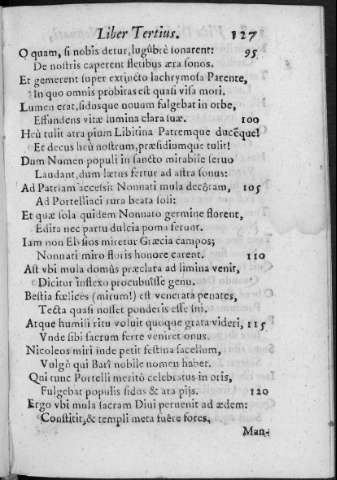 Liber Tertius. 127
O quam, si nobis detur, lugùbrè sonarent: 95
De nostris caperent fletibus æra sonos.
Et gemerent super extincto lachrymosa Parente,
In quo omnis probitas est quasi visa mori.
Lumen erat, sidusque nouum fulgebat in orbe,
Effundens vitæ lumina clara suæ. 100
Heù tulit atra pium Libitina Patremque ducẽque!
Et decus heù nostrum, præsidiumque tulit!
Dum Nomen populi in sancto mirabile seruo
Laudant, dum lætus fertur ad astra sonus:
Ad Patriam accessit Nonnati mula decôram, 105
Ad Portelliaci rura beata soli:
Et quæ sola quidem Nonnato germine florent,
Edita nec partu dulcia poma ferunt.
Iam non Elysios miretur Græcia campos;
Nonnati miro floris honore carent. 110
Ast vbi mula domûs præclata ad limina venit,
Dicitur inflexo procubuisse genu.
Bestia fœlices (mirum!) est venerata penates,
Tecta quasi nosset ponderis esse sui.
Atque humili ritu voluit quoque grata videri, 115
Vnde sibi sacrum ferre veniret onus.
Nicoleos miri inde petit festina sacellum,
Vulgò qui Barî nobile nomen habet.
Qui tunc Portelli meritò celebratus in oris,
Fulgebat populis sidus & ara pijs. 120
Ergo vbi mula sacram Diui peruenit ad ædem:
Constitit, & templi meta fuêre fores,
Man-